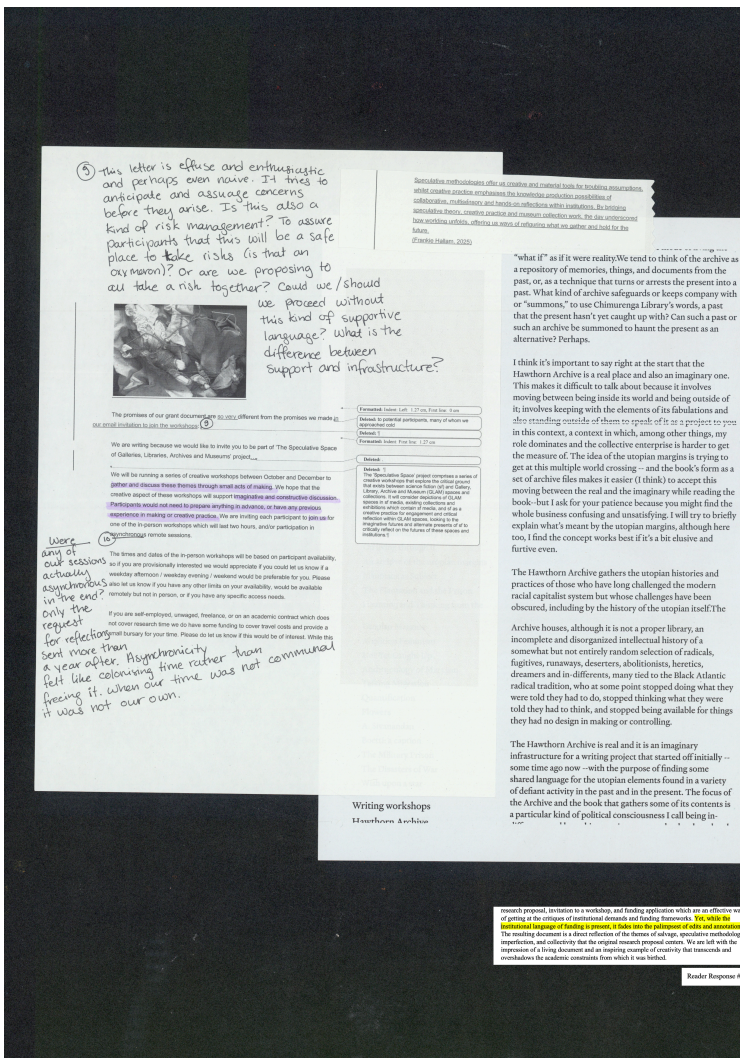 9 This letter is effuse and enthusiastic
and perhaps even naive. It tries to
anticipate and assuage concerns
before they arise. Is this also a
kind of risk management? To assure
participants that this will be a safe
place to take risks (is that an
oxymoron)? Or are we proposing to
all take a risk together? Could we/should
we proceed without
this kind of supportive
language? What is the
difference between
support and infrastructure?
The promises of our grant document are so very different from the promises we made in
our email invitation to join the workshops 9
We are writing because we would like to invite you to be part of ‘The Speculative Space
of Galleries, Libraries, Archives and Museums’ project
We will be running a series of creative workshops between October and December to
gather and discuss these themes through small acts of making. We hope that the
creative aspect of these workshops will support imaginative and constructive discussion.
Participants would not need to prepare anything in advance, or have any previous
experience in making or creative practice. We are inviting each participant to join us for
one of the in-person workshops which will last two hours, and/or participation in
asynchronous remote sessions.
The times and dates of the in-person workshops will be based on participant availability,
so if you are provisionally interested we would appreciate if you could let us know if a
weekday afternoon / weekday evening / weekend would be preferable for you. Please
also let us know if you have any other limits on your availability, would be available
remotely but not in person, or if you have any specific access needs.
If you are self-employed, unwaged, freelance, or on an academic contract which does
not cover research time we do have some funding to cover travel costs and provide a
small bursary for your time. Please do let us know if this would be of interest. While this
10 Were
any of
our sessions
actually
asynchronous
in the end?
only the
request
for reflections
sent more than
a year after. Asynchronicity
felt like colonising time rather than
freeing it. When our time was not communal
it was not our own.
Formatted: Indent: Left: 1.27 cm, First line: 0 cm
Deleted: to potential participants, many of whom we
approached cold
Deleted: ¶
Formatted: Indent: First line: 1.27 cm
Deleted: .
Deleted: ¶
The 'Speculative Space' project comprises a series of
creative workshops that explore the critical ground
that exists between science fiction (sf) and Gallery,
Library, Archive and Museum (GLAM) spaces and
collections. It will consider depictions of GLAM
spaces in sf media, existing collections and
exhibitions which contain sf media, and sf as a
creative practice for engagement and critical
reflection within GLAM spaces, looking to the
imaginative futures and alternate presents of sf to
critically reflect on the futures of these spaces and
institutions ¶
Speculative methodologies offer us creative and material tools for troubling assumptions,
whilst creative practice emphasises the knowledge production possibilities of
collaborative, multisensory and hands-on reflections within institutions. By bridging
speculative theory, creative practice and museum collection work, the day underscored
how worlding unfolds, offering us ways of refiguring what we gather and hold for the
future.
(Frankie Hallam, 2025)
"what if" as if it were reality.We tend to think of the archive as
a repository of memories, things, and documents from the
past, or, as a technique that turns or arrests the present into a
past. What kind of archive safeguards or keeps company with
or "summons," to use Chimurenga Library's words, a past
that the present hasn't yet caught up with? Can such a past or
such an archive be summoned to haunt the present as an
alternative? Perhaps.
I think it's important to say right at the start that the
Hawthorn Archive is a real place and also an imaginary one.
This makes it difficult to talk about because it involves
moving between being inside its world and being outside of
it; involves keeping with the elements of its fabulations and
also standing outside of them to speak of it as a project to you
in this context, a context in which, among other things, my
role dominates and the collective enterprise is harder to get
the measure of. The idea of the utopian margins is trying to
get at this multiple world crossing -- and the book's form as a
set of archive files makes it easier (I think) to accept this
moving between the real and the imaginary while reading the
book--but I ask for your patience because you might find the
whole business confusing and unsatisfying. I will try to briefly
explain what's meant by the utopian margins, although here
too, I find the concept works best if it's a bit elusive and
furtive even.
The Hawthorn Archive gathers the utopian histories and
practices of those who have long challenged the modern
racial capitalist system but whose challenges have been
obscured, including by the history of the utopian itself.The
Archive houses, although it is not a proper library, an
incomplete and disorganized intellectual history of a
somewhat but not entirely random selection of radicals,
fugitives, runaways, deserters, abolitionists, heretics,
dreamers and in-differents, many tied to the Black Atlantic
radical tradition, who at some point stopped doing what they
were told they had to do, stopped thinking what they were
told they had to think, and stopped being available for things
they had no design in making or controlling.
The Hawthorn Archive is real and it is an imaginary
infrastructure for a writing project that started off initially --
some time ago now --with the purpose of finding some
shared language for the utopian elements found in a variety
of defiant activity in the past and in the present. The focus of
the Archive and the book that gathers some of its contents is
a particular kind of political consciousness I call being in-
Writing workshops
Hawthorn Archive
research proposal, invitation to a workshop, and funding application which are an effective wa
of getting at the critiques of institutional demands and funding frameworks. Yet, while the
institutional language of funding is present, it fades into the palimpsest of edits and annotation
The resulting document is a direct reflection of the themes of salvage, speculative methodolog
imperfection, and collectivity that the original research proposal centers. We are left with the
impression of a living document and an inspiring example of creativity that transcends and
overshadows the academic constraints from which it was birthed.
Reader Response #